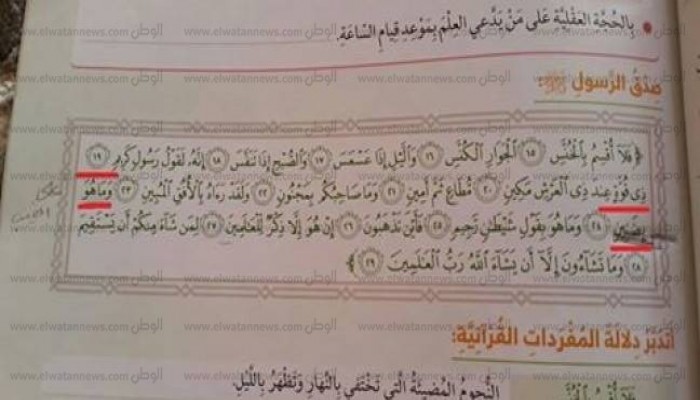 بِالْحُجَّةِ العَقْلِيَّةِ عَلَى مَنْ يَدَّعِي العِلْمَ بِمَوْعِدِ قِيَامِ السَّاعَةِ.
صِدْقُ الرَّسُولِ ﷺ:
﴿فَلَآ أُقْسِمُ بِالْخُنَّسِ ١٥ الْجَوَارِ الْكُنَّسِ ١٦ وَالَّيْلِ إِذَا عَسْعَسَ ١٧ وَالصُّبْحِ إِذَا تَنَفَّسَ ١٨ إِنَّهُ لَقَوْلُ رَسُولٍ كَرِيمٍ ١٩
ذِى قُوَّةٍ عِندَ ذِى الْعَرْشِ مَكِينٍ ٢٠ مُّطَاعٍ ثَمَّ أَمِينٍ ٢١ وَمَا صَاحِبُكُم بِمَجْنُونٍ ٢٢ وَلَقَدْ رَءَاهُ بِالْأُفُقِ الْمُبِينِ ٢٣ وَمَا هُوَ
بِضَنِينٍ ٢٤ وَمَا هُوَ بِقَوْلِ شَيْطَانٍ رَّجِيمٍ ٢٥ فَأَيْنَ تَذْهَبُونَ ٢٦ إِنْ هُوَ إِلَّا ذِكْرٌ لِّلْعَالَمِينَ ٢٧ لِمَن شَآءَ مِنكُمْ أَن يَسْتَقِيمَ
٢٨ وَمَا تَشَآءُونَ إِلَّآ أَن يَشَآءَ اللَّهُ رَبُّ الْعَالَمِينَ ٢٩﴾
أَتَدَبَّرُ دِلَالَةَ المُفْرَدَاتِ القُرْآنِيَّةِ:
النُّجُومُ المُضِيئَةُ الَّتِي تَخْتَفِي بِالنَّهَارِ وَتَظْهَرُ بِاللَّيْلِ.
الوطن www.elwatannews.com